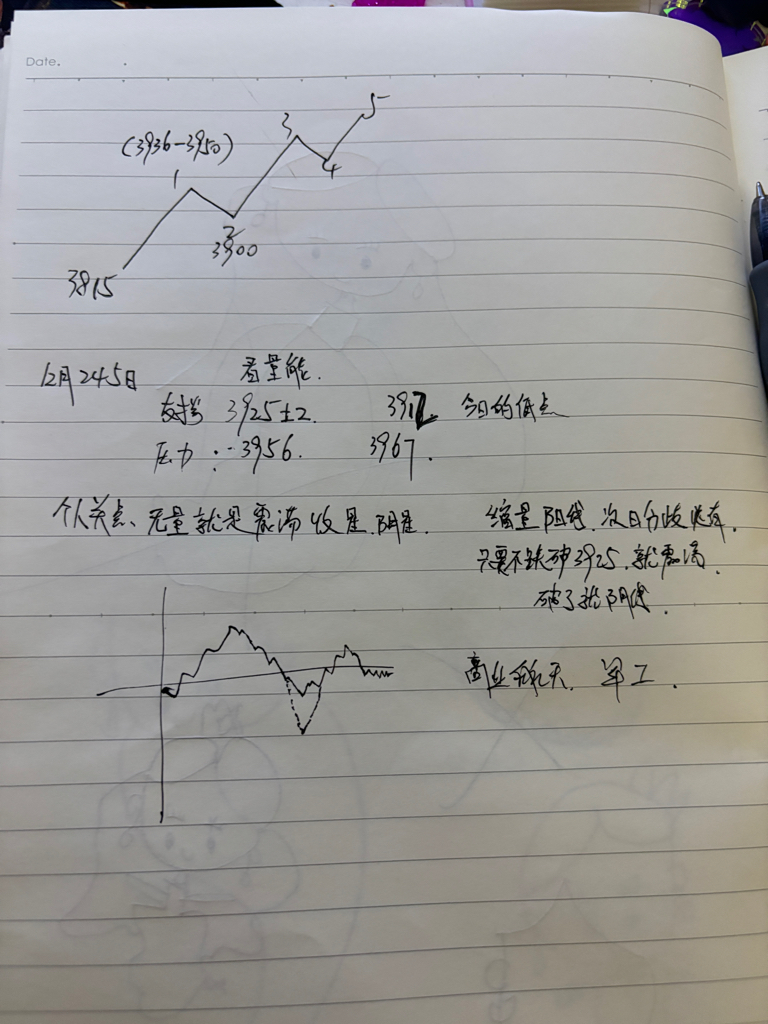 Date.
5
3
(3936-3950)
4
1
2
3900
3815
12月24.5日 看量能.
支撑 3925±2. 3912 今日的低点
压力:-3956. 3967.
个人关点、无量就是震荡收星.阴星. 缩量阳线.次日分歧
只要不跌破3925.就震荡.
破了就阴线.
商业航天. 军工.